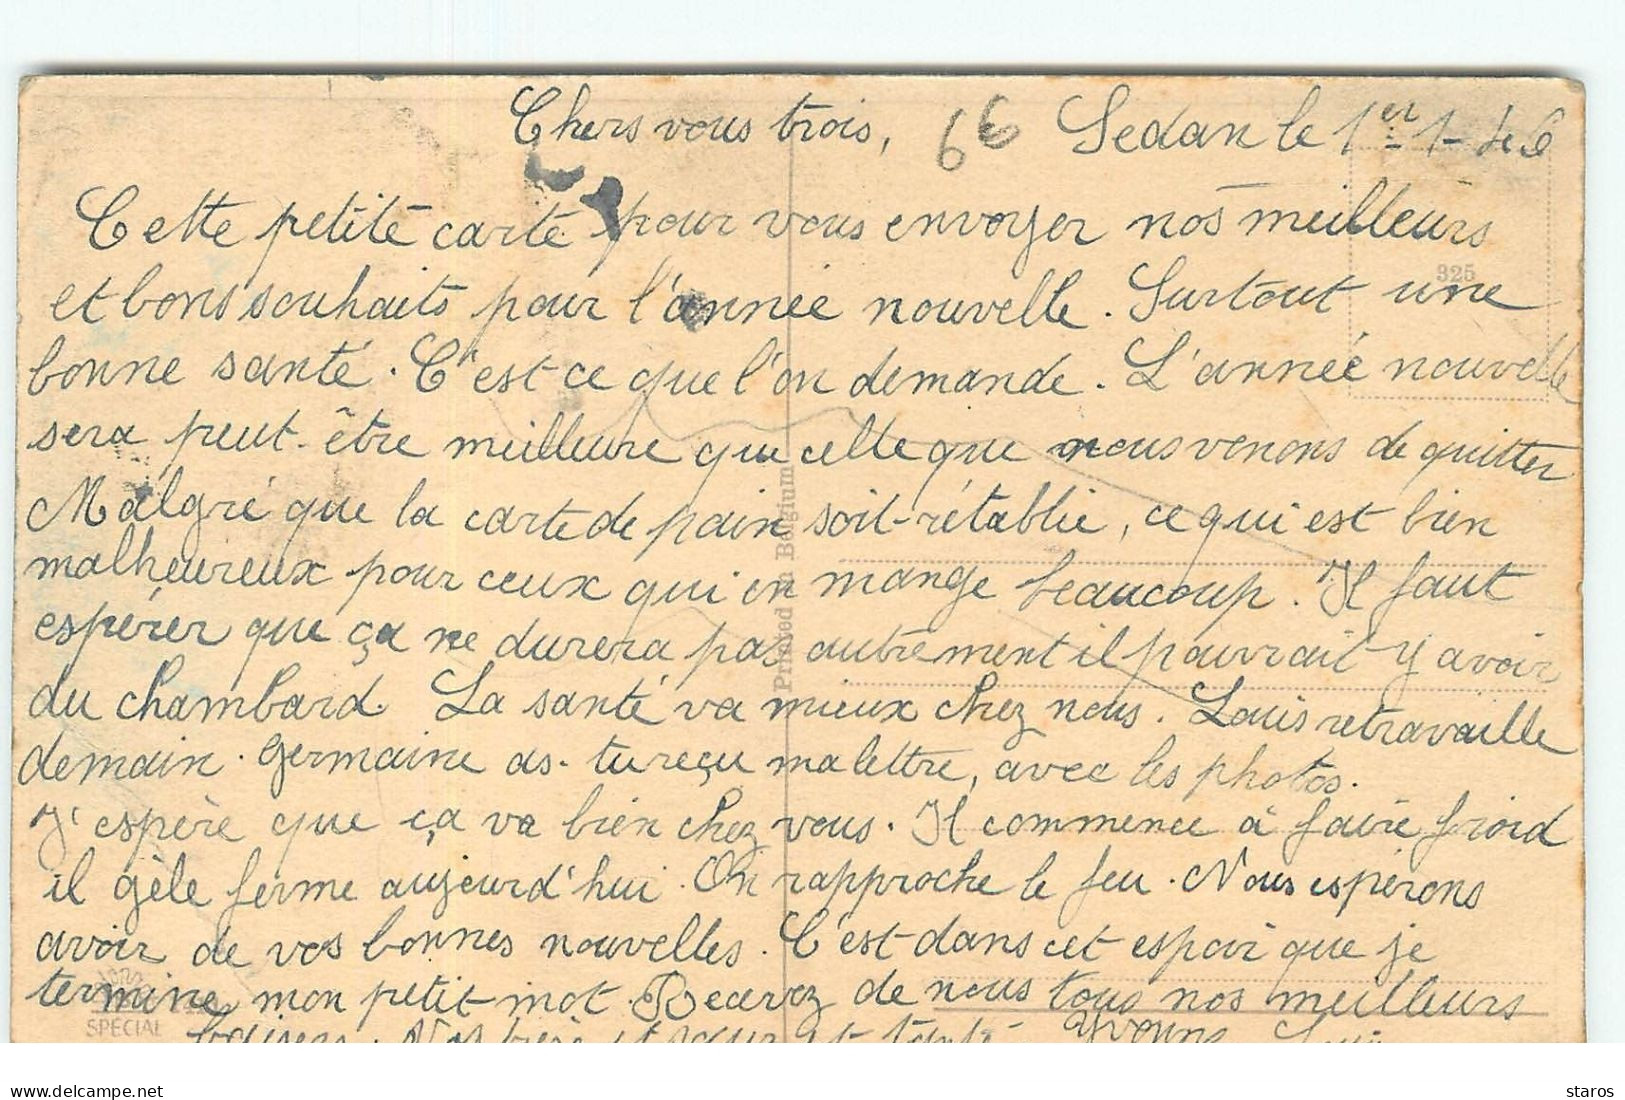 Chers vous trois, 66 Sedan le 1er-1-46
Cette petite carte pour vous envoyer nos meilleurs
et bons souhaits pour l'année nouvelle. Surtout une
325
bonne santé. C'est-ce que l'on demande. L'année nouvelle
sera peut-être meilleure que celle que nous venons de quitter
Malgré que la carte de pain soit-rétablie, ce qui est bien
malheureux pour ceux qui en mange beaucoup. Il faut
espérer que ça ne durera pas autrement il pourrait y avoir
du chambard. La santé va mieux chez nous. Louis retravaille
demain. Germaine as-tu reçu ma lettre, avec les photos.
J'espère que ça va bien chez vous. Il commence à faire froid
il gèle ferme aujourd'hui. On rapproche le feu. Nous espérons
avoir de vos bonnes nouvelles. C'est dans cet espoir que je
termine mon petit mot. Recevez de nous tous nos meilleurs
baisers. Vos frère et sœur et tante Yvonne
Printed in Belgium
SPECIAL
delcampe.net
staros